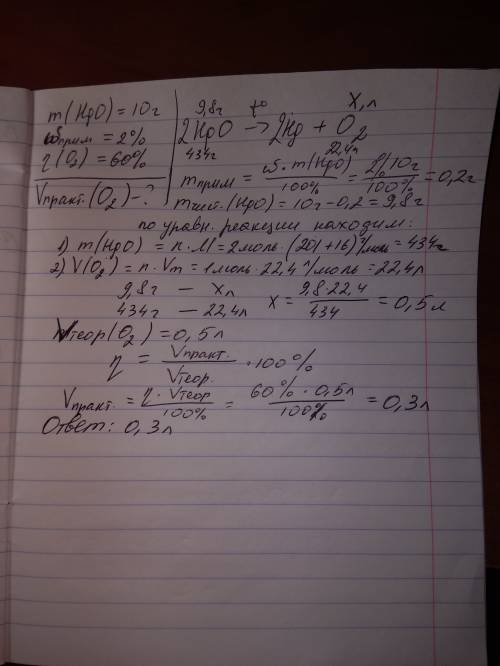 m(HgO) = 10г
ωприм = 2%
η(O₂) = 60%
Vпракт.(O₂) – ?
9,8г t° X, л
2HgO → 2Hg + O₂
434г 22,4л
mприм = ω · m(HgO) / 100% = 2% · 10г / 100% = 0,2г
mчист.(HgO) = 10г – 0,2 = 9,8г
по уравн. реакции находим:
1) m(HgO) = n · M = 2моль · (201+16) г/моль = 434г
2) V(O₂) = n · Vm = 1моль · 22,4 л/моль = 22,4л
9,8г — Xл
434г — 22,4л X = 9,8·22,4 / 434 = 0,5 л
Vтеор(O₂) = 0,5л
η = Vпракт. / Vтеор. · 100%
Vпракт. = η · Vтеор / 100% = 60% · 0,5л / 100% = 0,3л
Ответ: 0,3л